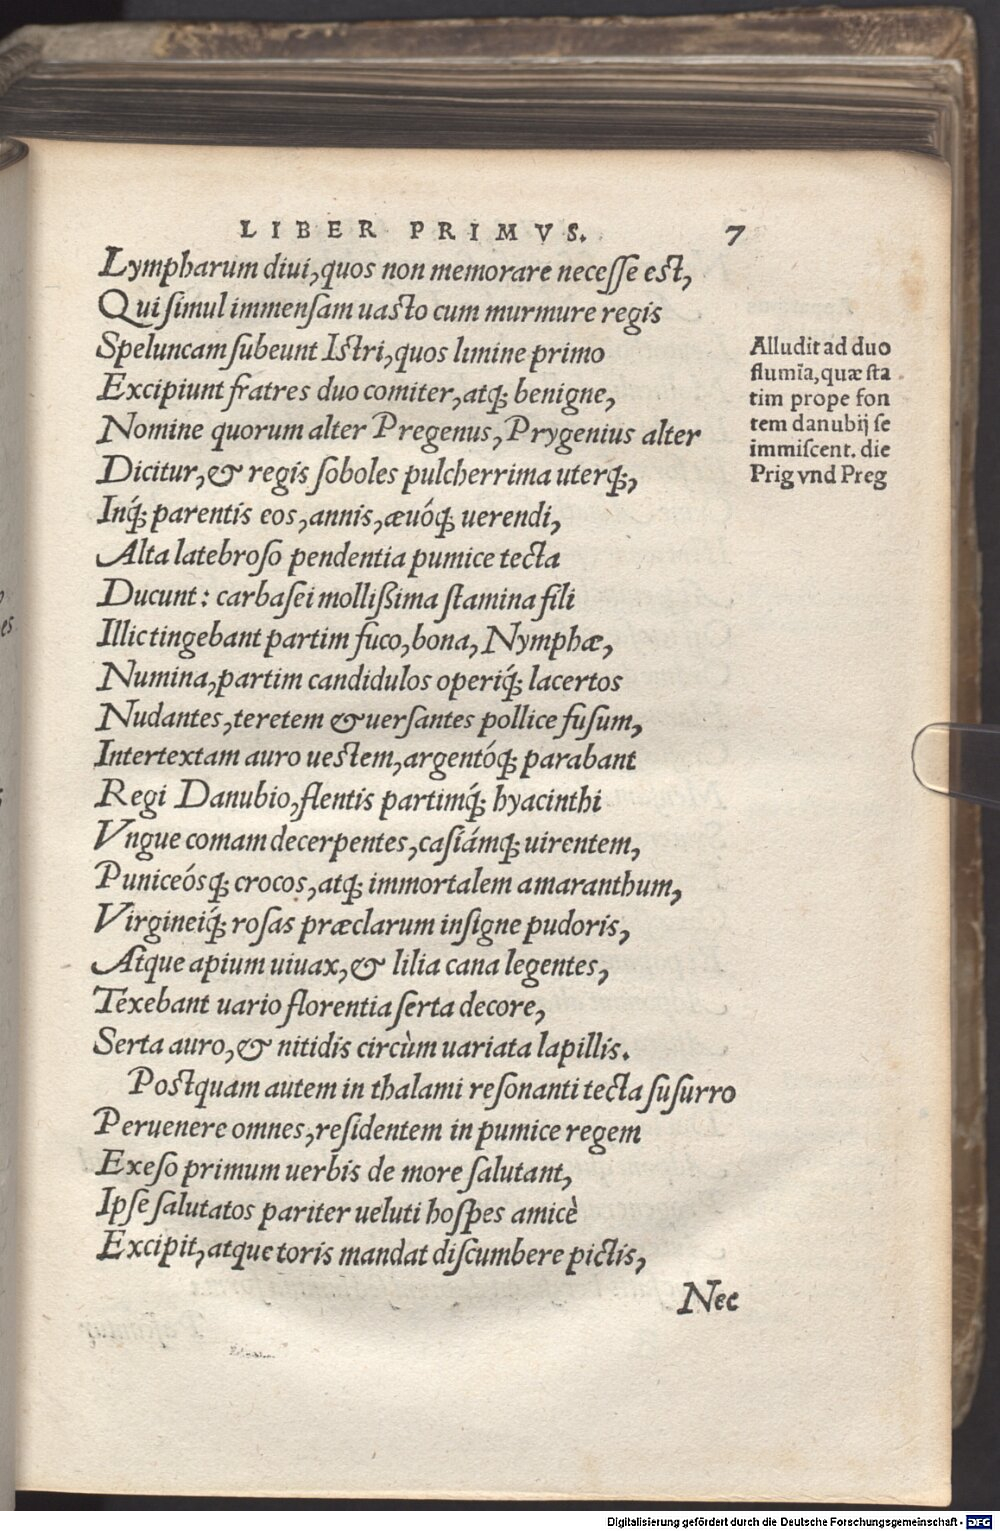 LIBER PRIMVS. 7
Lympharum diui, quos non memorare necesse est,
Qui simul immensam uasto cum murmure regis
Speluncam subeunt Istri, quos limine primo
Excipiunt fratres duo comiter, atq; benigne,
Nomine quorum alter Pregenus, Prygenius alter
Dicitur, & regis soboles pulcherrima uterq;,
Inq́; parentis eos, annis, æuóq; uerendi,
Alta latebroso pendentia pumice tecta
Ducunt: carbasei mollißima stamina fili
Illic tingebant partim fuco, bona, Nymphæ,
Numina, partim candidulos operiq́; lacertos
Nudantes, teretem & uersantes pollice fusum,
Intertextam auro uestem, argentóq; parabant
Regi Danubio, flentis partimq́; hyacinthi
Vngue comam decerpentes, casiámq; uirentem,
Puniceósq; crocos, atq; immortalem amaranthum,
Virgineiq́; rosas præclarum insigne pudoris,
Atque apium uiuax, & lilia cana legentes,
Texebant uario florentia serta decore,
Serta auro, & nitidis circùm uariata lapillis.
Postquam autem in thalami resonanti tecta susurro
Peruenere omnes, residentem in pumice regem
Exeso primum uerbis de more salutant,
Ipse salutatos pariter ueluti hospes amicè
Excipit, atque toris mandat discumbere pictis,
Nec
Alludit ad duo
flumīa, quæ sta
tim prope fon
tem danubij se
immiscent. die
Prig vnd Preg
Digitalisierung gefördert durch die Deutsche Forschungsgemeinschaft - DFG